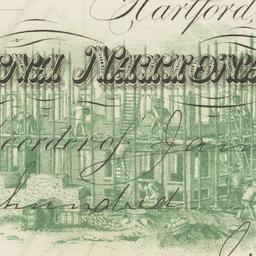 Hartford,
ona National
or order of Jam
hundred